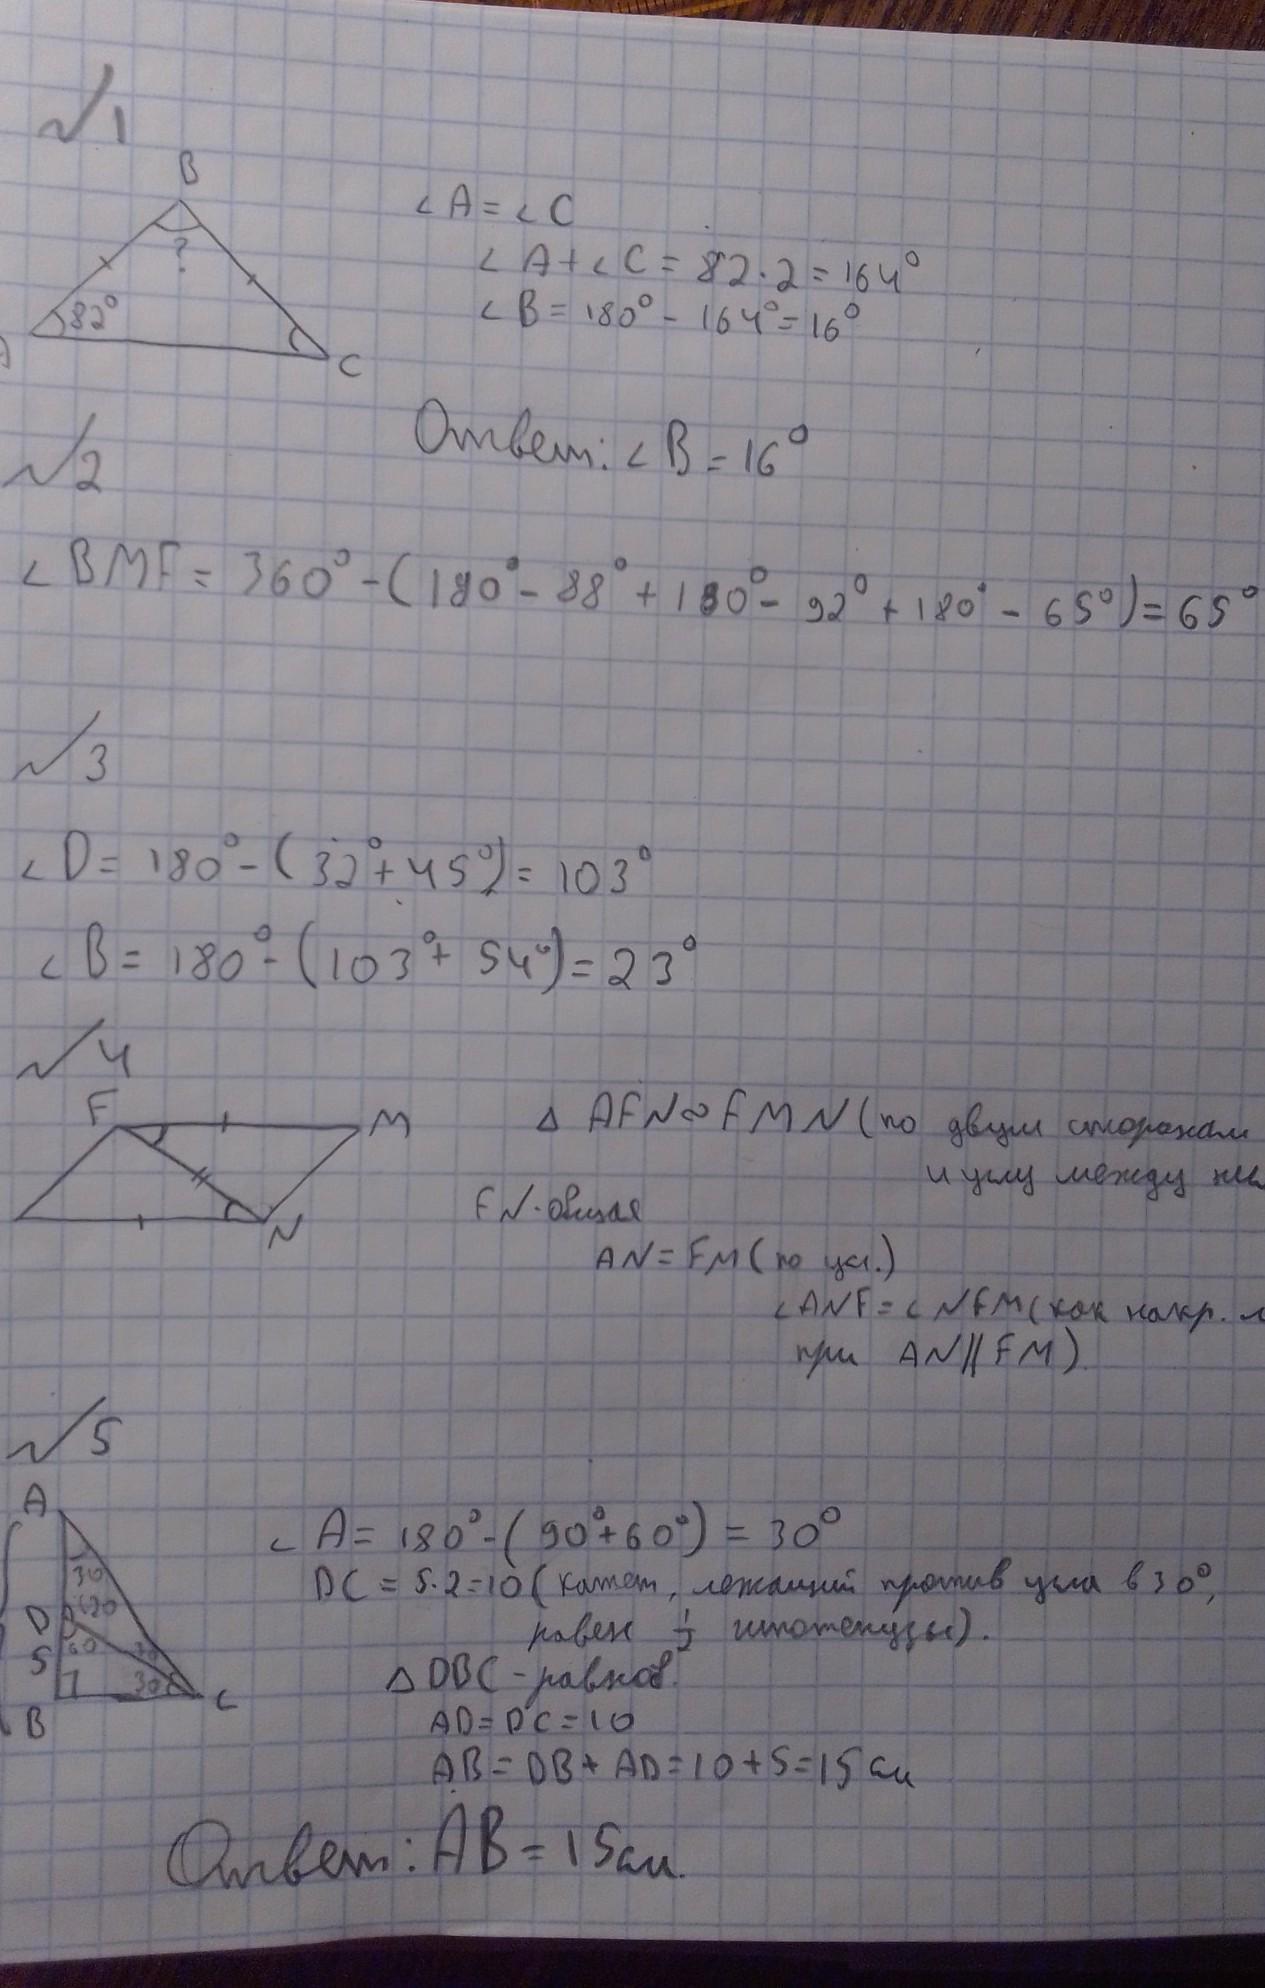 №1
B
?
82°
C
∠A = ∠C
∠A + ∠C = 82·2 = 164°
∠B = 180° - 164° = 16°
Ответ: ∠B = 16°
№2
∠BMF = 360° - (180° - 88° + 180° - 92° + 180° - 65°) = 65°
№3
∠D = 180° - (32° + 45°) = 103°
∠B = 180° - (103° + 54°) = 23°
№4
F
M
N
Δ AFN ∞ FMN (по двум сторонам
и углу между
FN - общая
AN = FM (по усл.)
∠ANF = ∠NFM (как накр.
при AN || FM).
№5
A
30
120
D
60
30
5
30
B
C
∠A = 180° - (90° + 60°) = 30°
DC = 5·2 = 10 (катет, лежащий против угла в 30°,
равен ½ гипотенузы).
Δ DBC - равноб.
AD = DC = 10
AB = DB + AD = 10 + 5 = 15 см
Ответ: AB = 15 см.